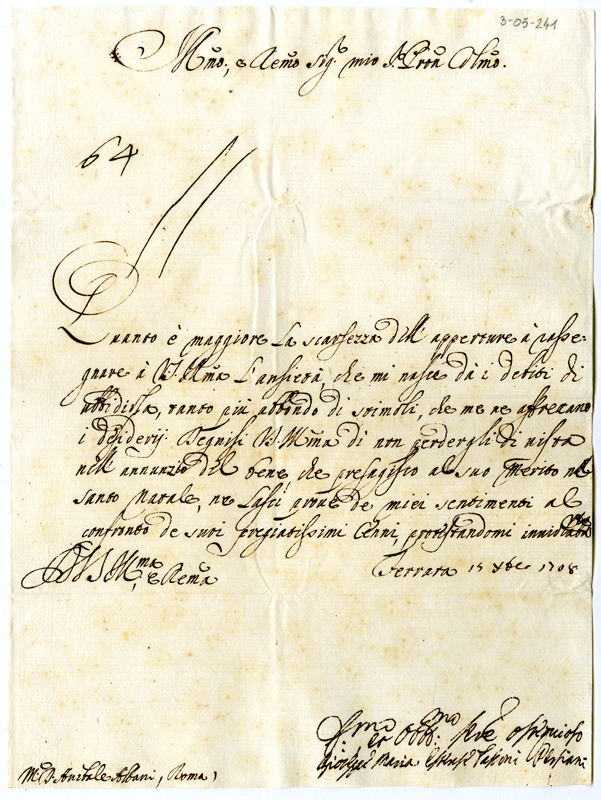 3-05-241
Illmo, e Remo Sig.r mio P.ron Colmo.
64
Quanto è maggiore la scarsezza dell' apperture à rasse-
gnare à V.S. Illma l'ansietà, che mi nasce da i debiti di
ubbidirla, tanto più abbondo di stimoli, che me ne affrettano
i desiderij. Degnisi V.S. Illma di non perdergli di vista
nell' annunzio del bene, che presagisco al suo merito nel
Santo Natale, ne lasci prove de miei sentimenti al
confronto de suoi pregiatissimi Cenni, protestandomi
D V.S. Illma, e Rema
Ferrara 15 Xbre 1708
Obb.mo
Maria Estense Tassoni
M.r D. Annibale Albani, Roma